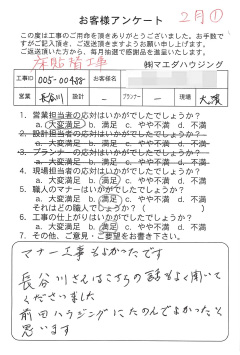 お客様アンケート
2月①
この度は工事のご用命を頂きありがとうございました。お手数で
すがご記入頂き、ご返送頂きますようお願い申し上げます。
ご返送頂いた方から、毎月抽選で感謝品を進呈いたします。
床貼替工事
㈱マエダハウジング
工事ID 005-00488- お客様名
営業 長谷川 設計 プランナー ー 現場 大濱
1. 営業担当者の応対はいかがでしたでしょうか?
a. 大変満足 b. 満足 c. やや不満 d. 不満
2. 設計担当者の応対はいかがでしたでしょうか?
a. 大変満足 b. 満足 c. やや不満 d. 不満
3. プランナーの応対はいかがでしたでしょうか?
a. 大変満足 b. 満足 c. やや不満 d. 不満
4. 現場担当者の応対はいかがでしたでしょうか?
a. 大変満足 b. 満足 c. やや不満 d. 不満
5. 職人のマナーはいかがでしたでしょうか?
a. 大変満足 b. 満足 c. やや不満 d. 不満
それはどの職人でしょうか?( )
6. 工事の仕上がりはいかがでしたでしょうか?
a. 大変満足 b. 満足 c. やや不満 d. 不満
7. その他、ご意見・ご要望をお書き下さい。
マナー工事もよかったです
長谷川さんはこちらの話もよく聞いて
くださいました
前田ハウジングにたのんでよかったと
思います